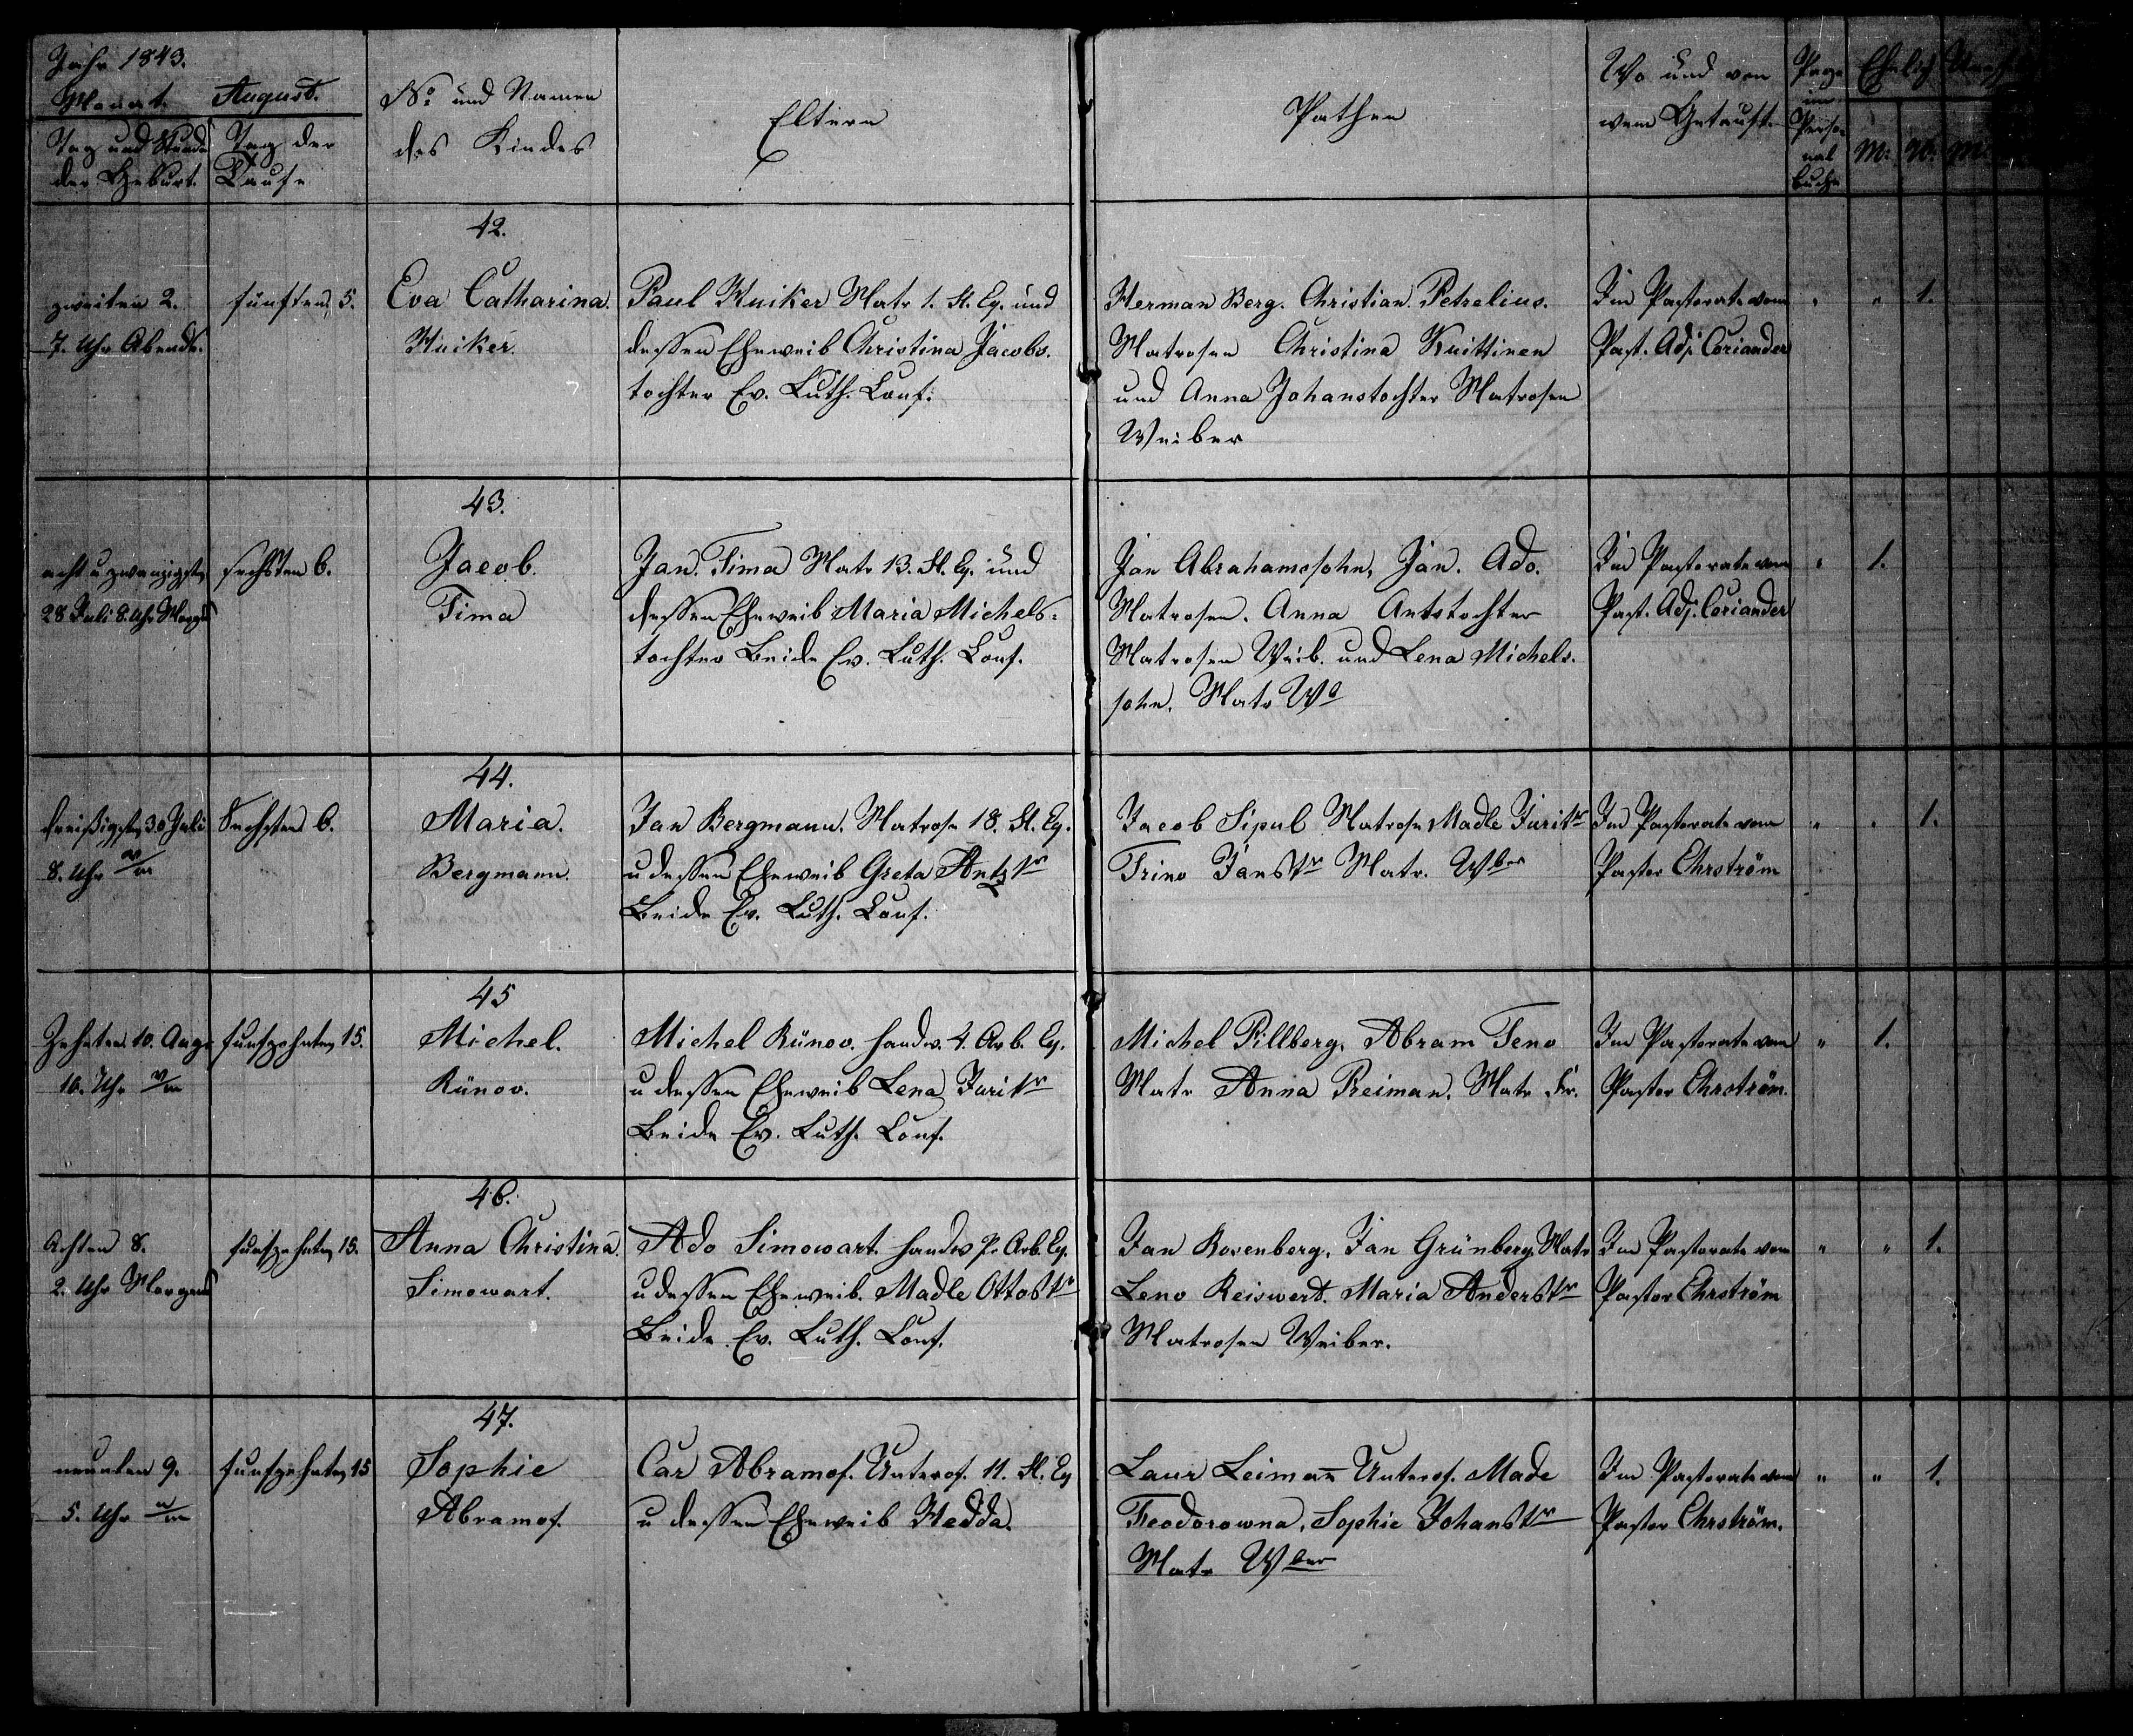 Jahr 1843.
Monat. August.
Tag und Stunde der Geburt.
Tag der Taufe
No und Namen des Kindes
Eltern
Pathen
Wo und von wem Getauft.
Page im Personal buche
Ehelich
M. W. M.
42.
zweiten 2.
7. Uhr Abends.
fünften 5.
Eva Catharina.
Huiker.
Paul Huiker Matr 1. Fl. Eq. und
dessen Eheweib Christina Jacobs.
tochter Ev. Luth. Conf:
Herman Berg. Christian Petrelius.
Matrosen Christina Kuittinen
und Anna Johanstochter Matrosen
Weiber
Im Pastorate vom
Past. Adj. Coriander
" " 1.
43.
acht u zwanzigsten
28 Juli 8. Uhr Morgens
sechsten 6.
Jacob.
Tima
Jan. Tima Matr 13. Fl. Eq. und
dessen Eheweib Maria Michels-
tochter Beide Ev. Luth. Conf.
Jan Abrahamssohn, Jan. Ado.
Matrosen. Anna Antstochter
Matrosen Weib. und Lena Michels.
sohn. Matr Wb
Im Pastorate vom
Past. Adj. Coriander
" 1.
44.
dreißigsten 30 Juli
8. Uhr v/m
Sechsten 6.
Maria.
Bergmann.
Jan Bergmann. Matrose 18. Fl. Eq.
u dessen Eheweib Greta Antstr
Beide Ev. Luth. Conf.
Jacob Sipul Matrose Madle Juritr
Trino Janstr Matr. Wber
Im Pastorate vom
Pastor Ehrström
" " 1.
45
Zehnten 10. Aug.
10. Uhr v/m
funfzehnten 15.
Michel.
Künov.
Michel Künov. Handw. 4. Arb. Eq.
u dessen Eheweib Lena Juritr
Beide Ev. Luth. Conf.
Michel Pillberg, Abram Teno
Matr Anna Reiman. Matr Fr.
Im Pastorate vom
Pastor Ehrström.
" 1.
46.
Achten 8.
2. Uhr Morgens
funfzehnten 15.
Anna Christina.
Simowart.
Ado Simowart. Handw Arb Eq.
u dessen Eheweib. Madle Ottostr
Beide Ev. Luth. Conf.
Jan Rosenberg, Jan Grünberg. Matr
Leno Reiswert. Maria Anderstr
Matrosen Weiber.
Im Pastorate vom
Pastor Ehrström
" " 1.
47.
neunten 9.
5. Uhr n/m
funfzehnten 15
Sophie
Abramof.
Car Abramof. Unterof. 11. Fl. Eq
u dessen Eheweib Hedda.
Laur Leiman Unterof. Made
Feodorowna, Sophie Johanstr
Matr Wber
Im Pastorate vom
Pastor Ehrström.
" " 1.